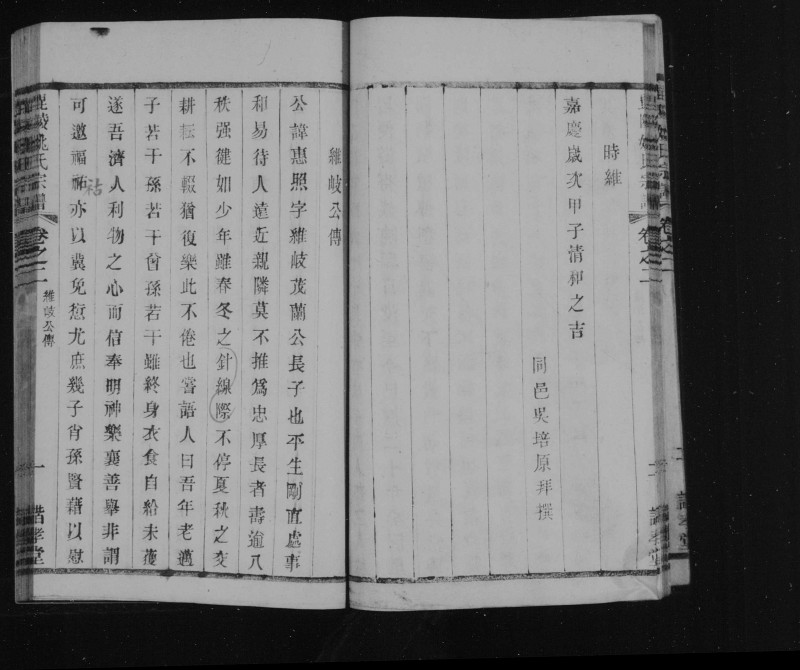 時維
嘉慶歲次甲子清和之吉
同邑吳培原拜撰
維岐公傳
公諱惠照字維岐茂蘭公長子也平生剛直處事
和易待人遠近親隣莫不推為忠厚長者壽逾八
秩强健如少年雖春冬之針線際不停夏秋之
耕耘不輟猶復樂此不倦也嘗語人曰吾年老邁
子若干孫若干曾孫若干雖終身衣食自給未獲
遂吾濟人利物之心而信奉明神樂襄善舉非謂
可邀福祐亦以冀免愆尤庶幾子肖孫賢藉以慰
祜
姚氏宗譜
卷之二
維岐公傳
一